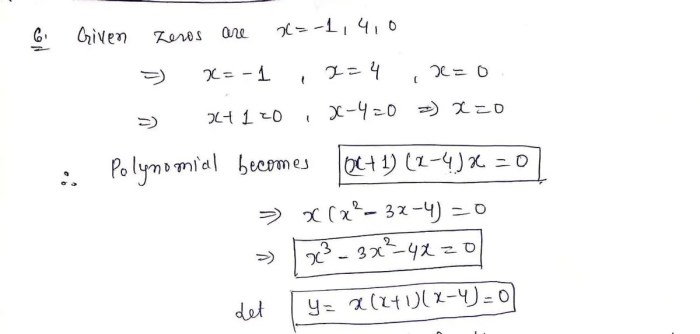 6. Given zeros are x = -1, 4, 0
⇒ x = -1 , x = 4 , x = 0
⇒ x+1=0 , x-4=0 ⇒ x=0
∴ Polynomial becomes (x+1)(x-4)x = 0
⇒ x(x²-3x-4) = 0
⇒ x³-3x²-4x = 0
let y = x(x+1)(x-4) = 0